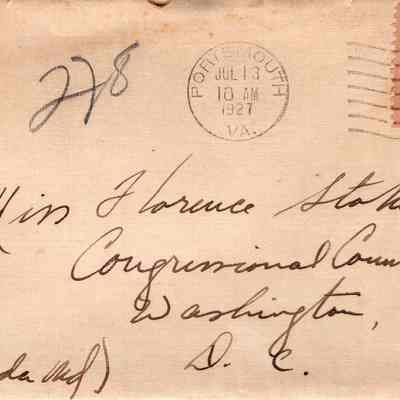 228
PORTSMOUTH
JUL 13
10 AM
1927
VA.
Miss Florence Sto
Congressional Coun
Washington,
D. C.
da Md)